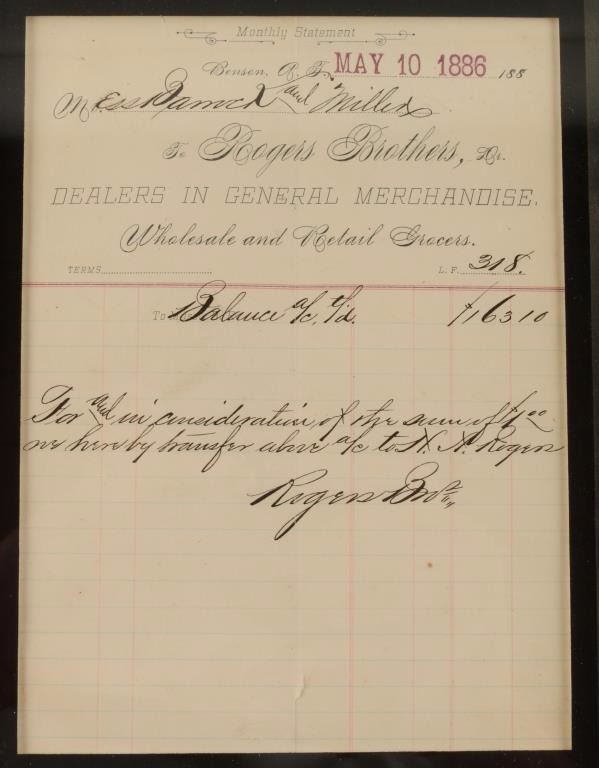 Monthly Statement
Benson, A. T., MAY 10 1886 188
Mess and Miller
To Rogers Brothers, Dr.
DEALERS IN GENERAL MERCHANDISE.
Wholesale and Retail Grocers.
TERMS L. F. 318.
To Balance a/c. r/d. $163 10
For and in consideration of the sum of $1.00
we hereby transfer above a/c to H. N. Rogers
Rogers Bros